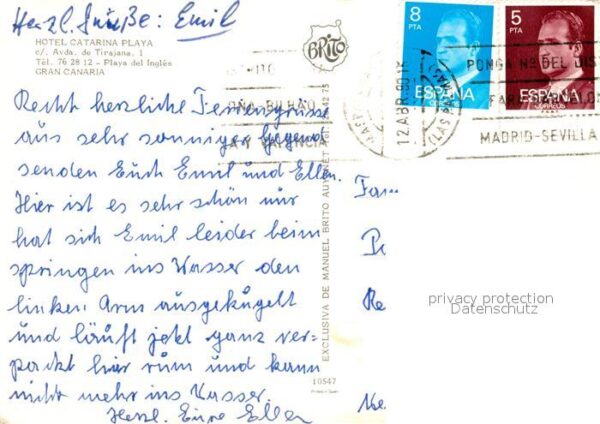 Herzl. Grüße: Emil
HOTEL CATARINA PLAYA
c/. Avda. de Tirajana, 1
Tél. 76 28 12 - Playa del Inglés
GRAN CANARIA
BRITO
8
PTA
ESPAÑA
5
PTA
ESPAÑA
CORREOS
12 ABR 80
(LAS PALMAS)
PONGA Nº DEL DIS
MADRID-SEVILLA
BILBAO
VALENCIA
Recht herzliche Feriengrüsse
aus sehr sonniger Gegend
senden Euch Emil und Ellen.
Hier ist es sehr schön nur
hat sich Emil leider beim
springen ins Wasser den
linken Arm ausgekugelt
und läuft jetzt ganz ver-
packt hier rum und kann
nicht mehr ins Wasser.
Herzl. Eure Ellen
EXCLUSIVA DE MANUEL BRITO AUYANET
10547
Fam
Re
privacy protection
Datenschutz